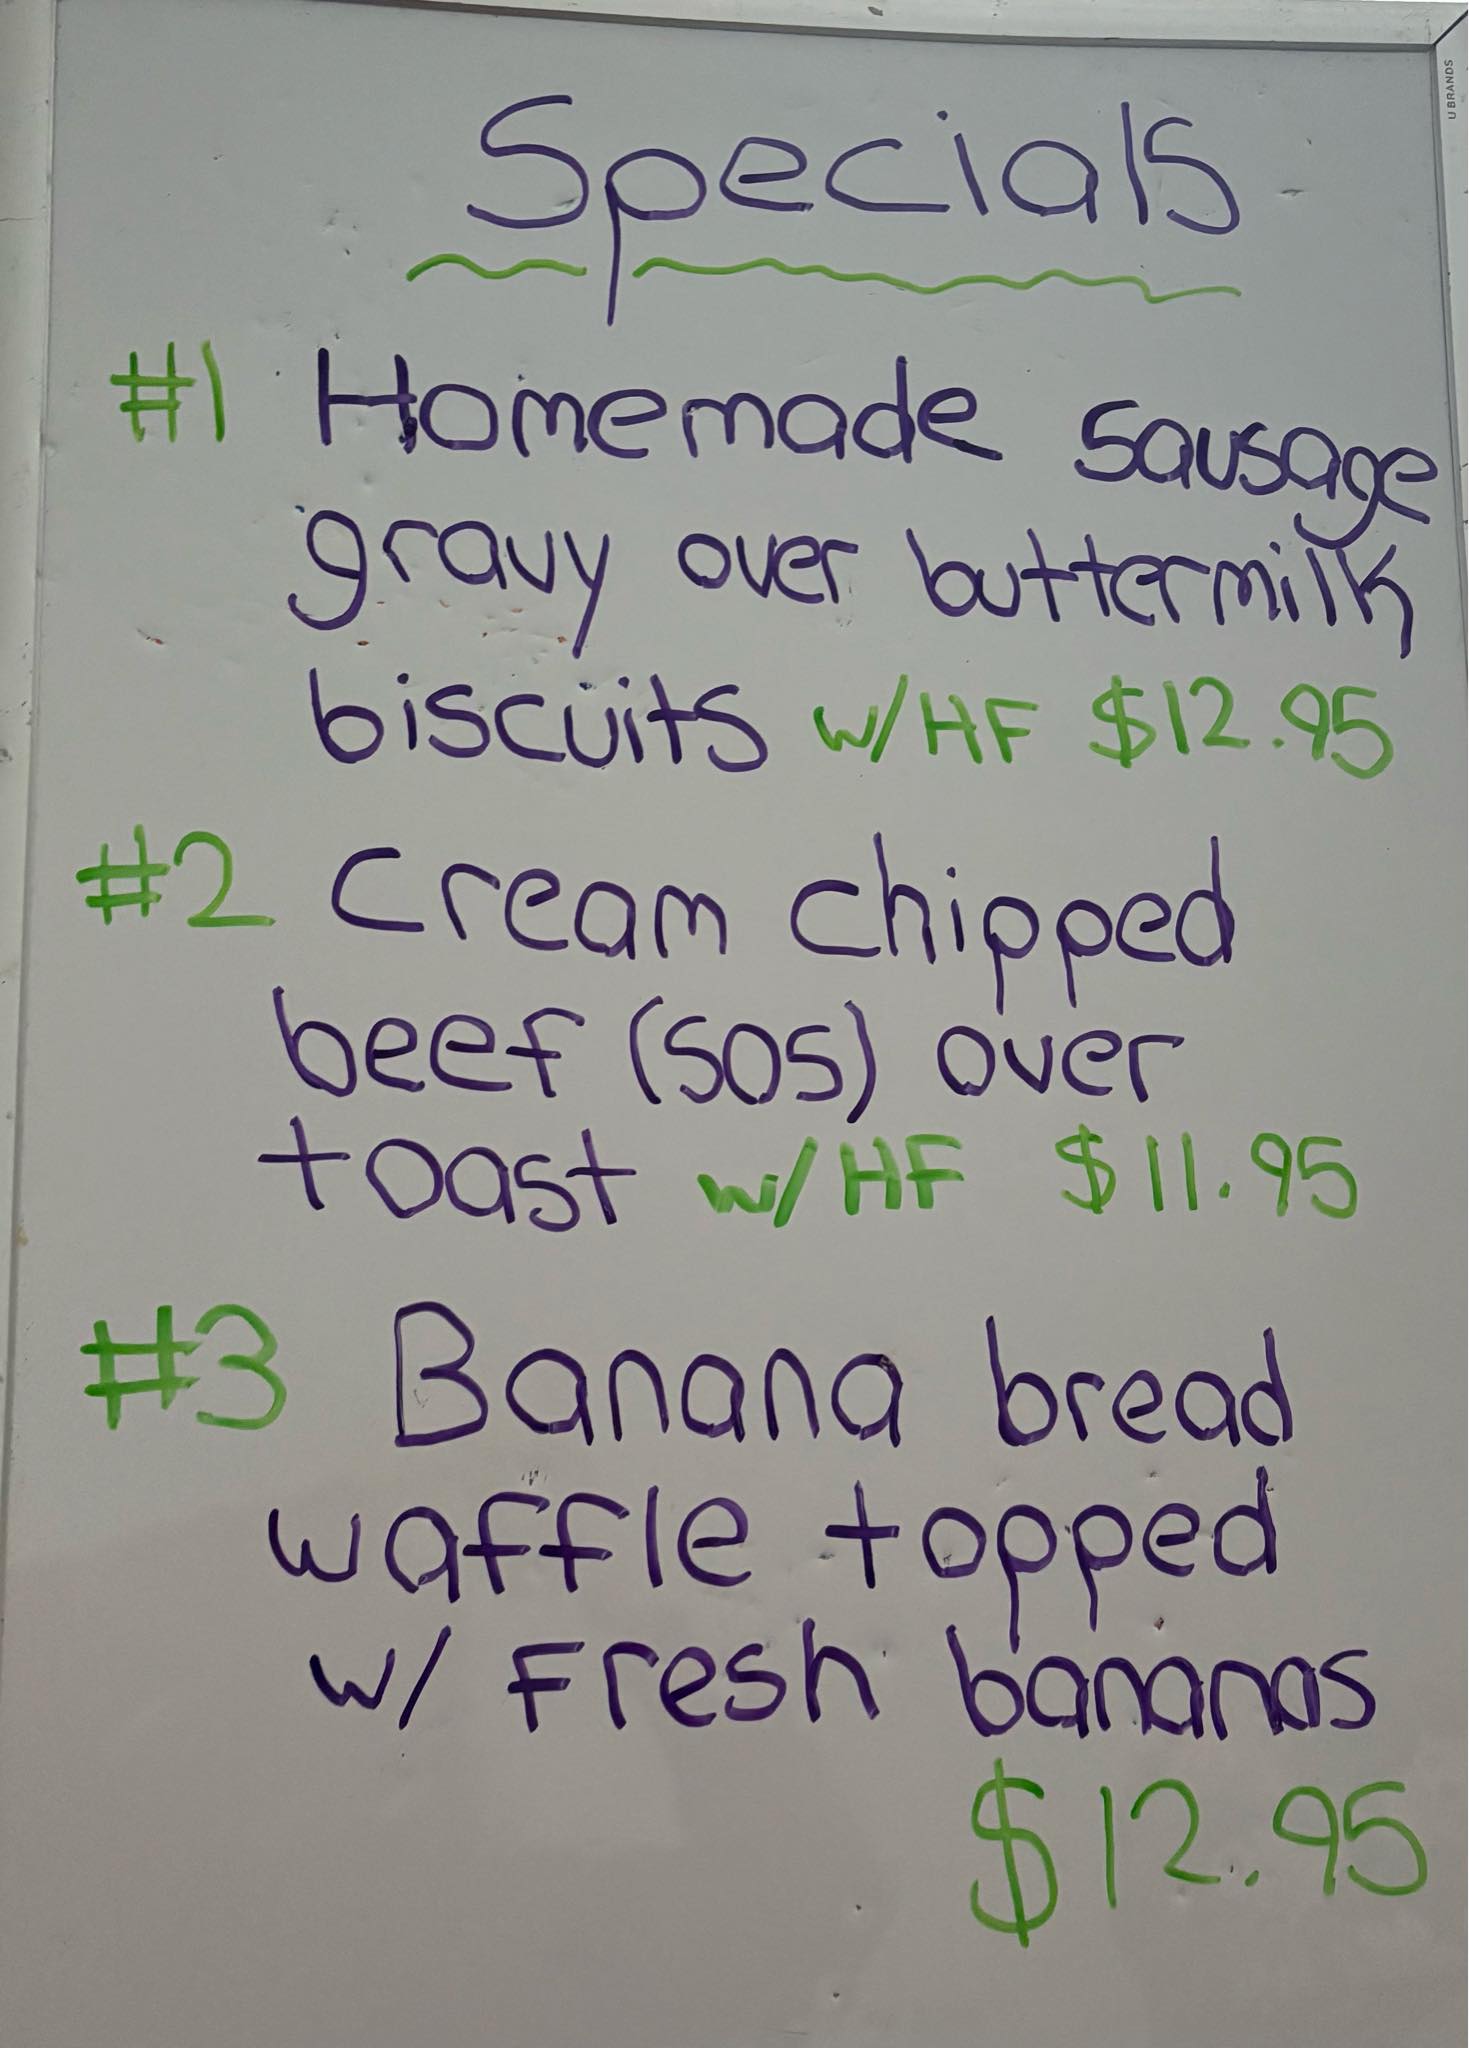 U BRANDS
Specials
#1 Homemade sausage
gravy over buttermilk
biscuits w/HF $12.95
#2 Cream chipped
beef (SOS) over
toast w/HF $11.95
#3 Banana bread
waffle topped
w/ Fresh bananas
$12.95